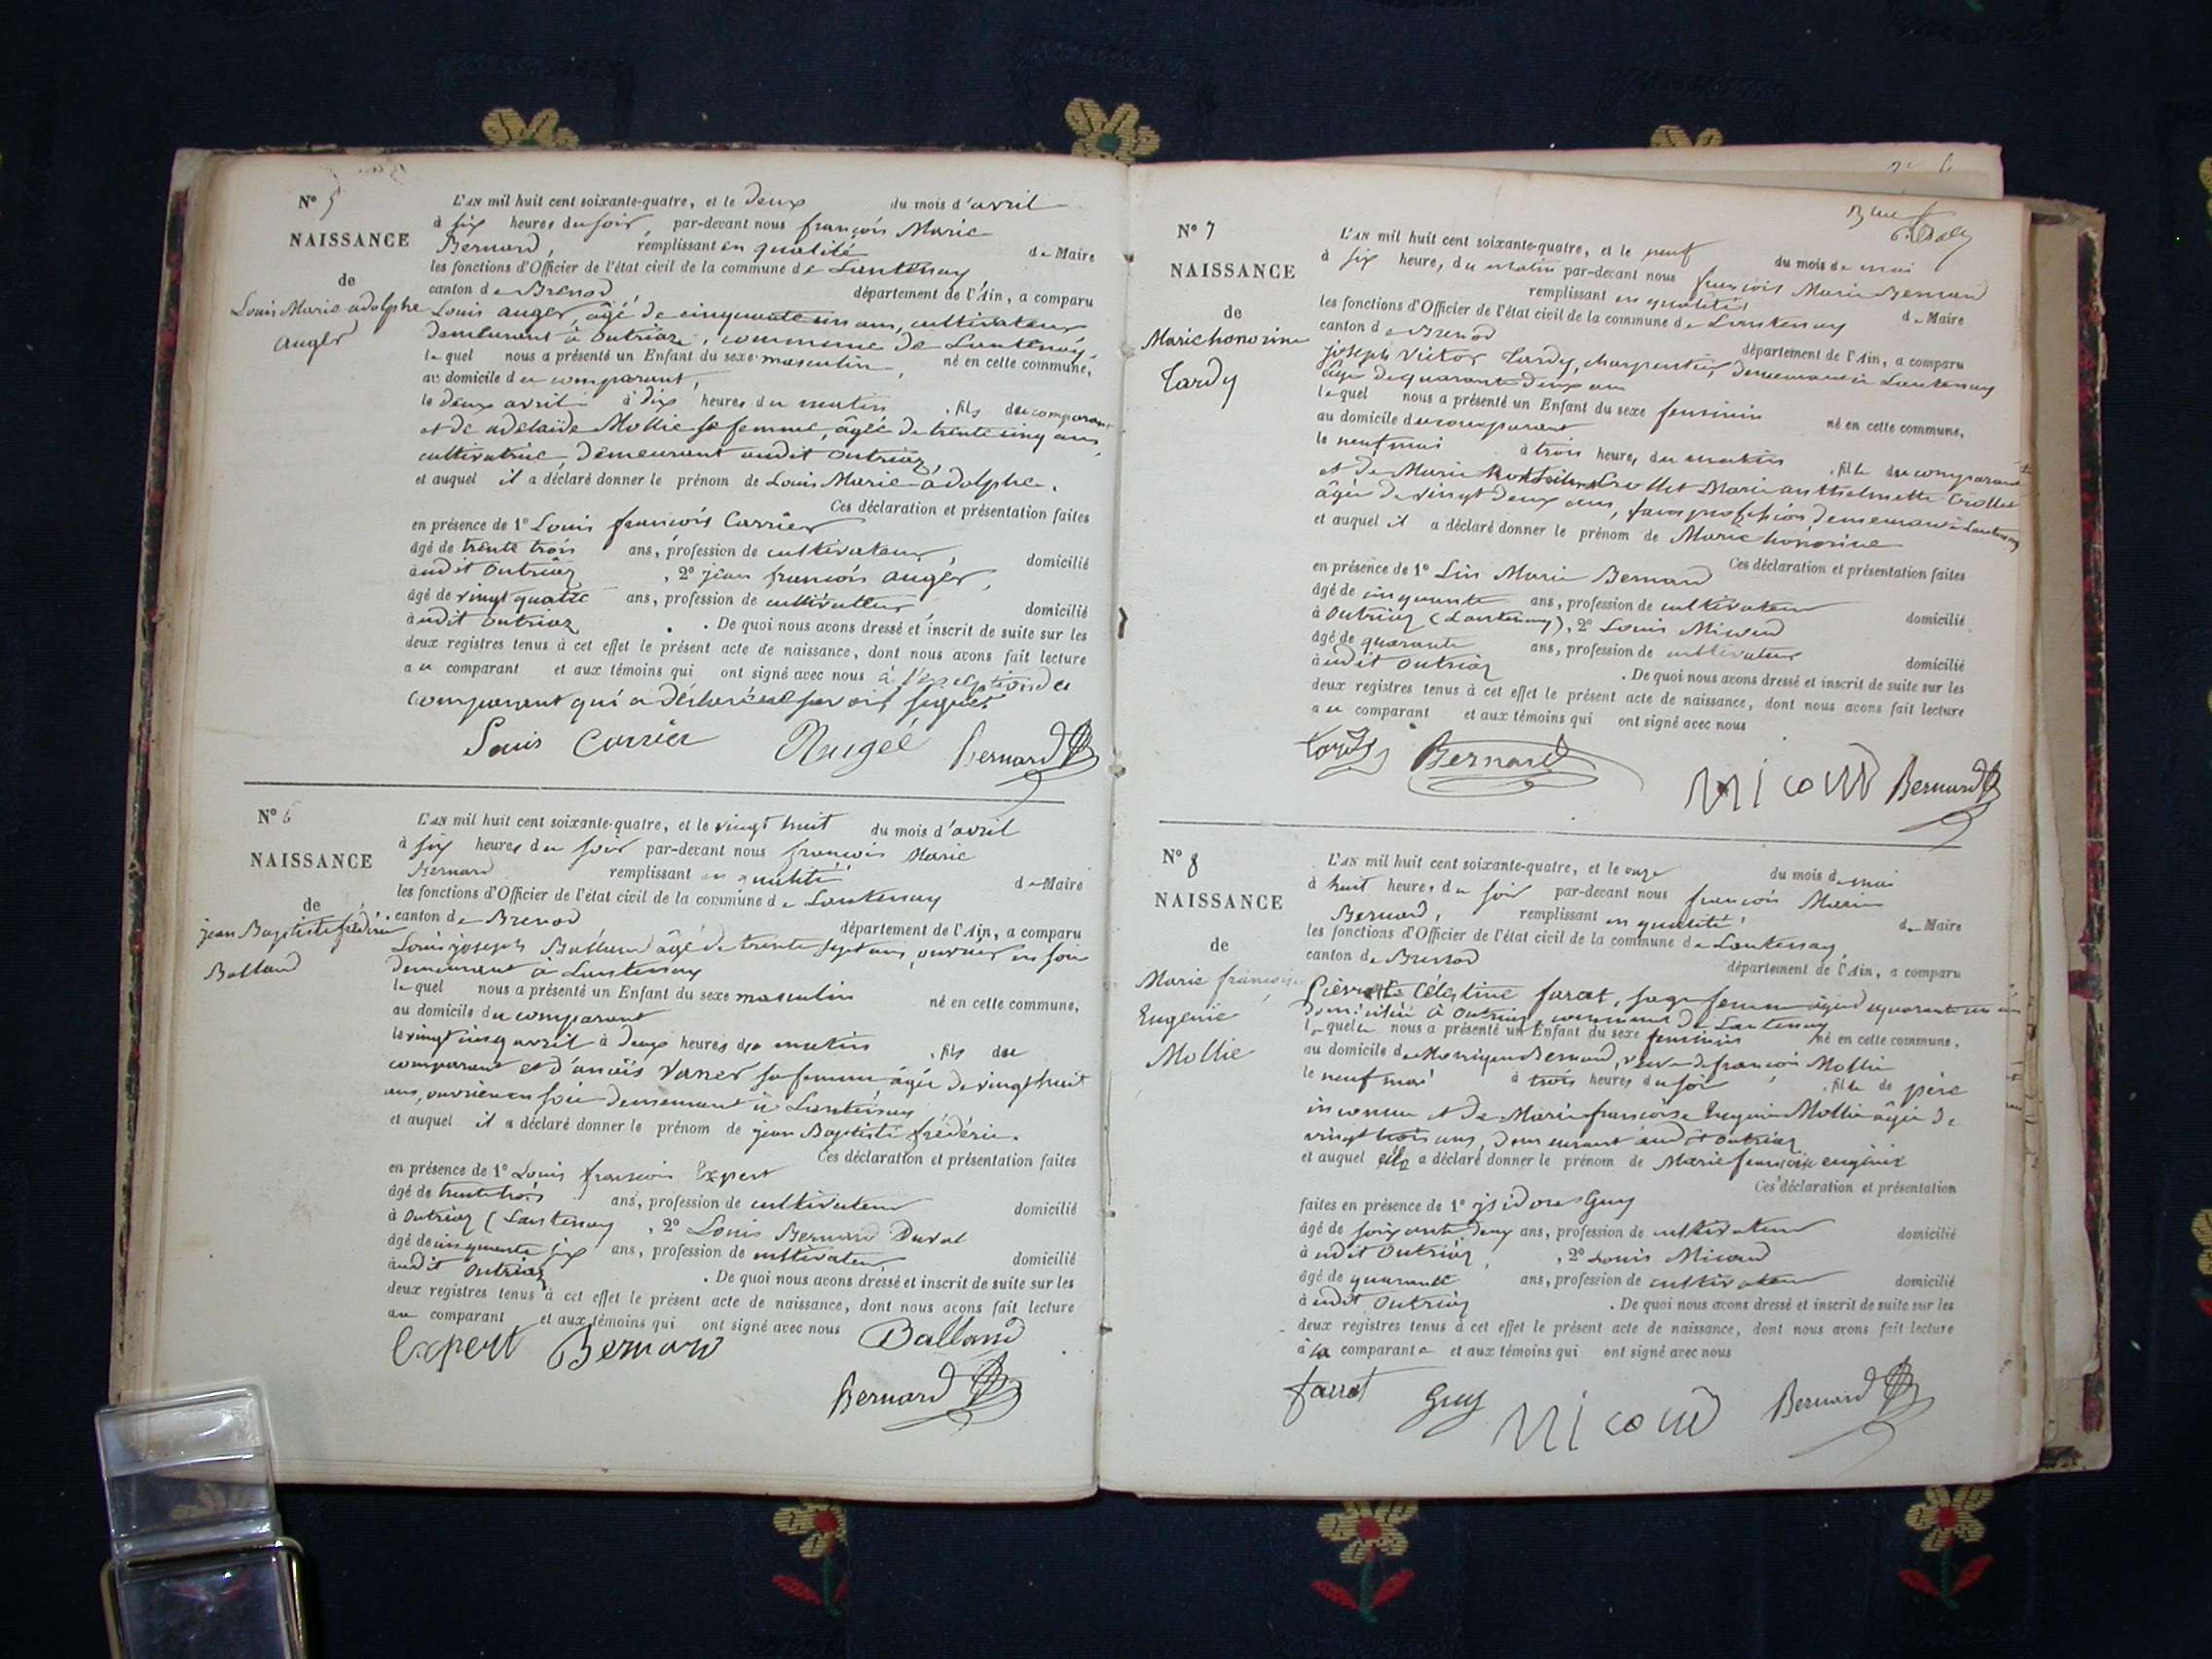 N° 5
NAISSANCE
de
Louis Marie adolphe
auger
L'AN mil huit cent soixante-quatre, et le deux du mois d'avril
à six heures du soir, par-devant nous françois Marie
Bernard, remplissant en qualité de Maire
les fonctions d'Officier de l'état civil de la commune de Lantenay
canton de Brénod département de l'Ain, a comparu
Louis auger, âgé de cinquante un ans, cultivateur
demeurant à Outriaz, commune de Lantenay,
lequel nous a présenté un Enfant du sexe masculin, né en cette commune,
au domicile du comparant,
le deux avril à dix heures du matin, fils du comparant
et de adelaïde Mollie sa femme, âgée de trente cinq ans,
cultivatrice, demeurant audit Outriaz,
et auquel il a déclaré donner le prénom de Louis Marie adolphe.
Ces déclaration et présentation faites
en présence de 1° Louis françois Carrier
âgé de trente trois ans, profession de cultivateur, domicilié
audit Outriaz, 2° jean françois auger,
âgé de vingt quatre ans, profession de cultivateur, domicilié
audit Outriaz. De quoi nous avons dressé et inscrit de suite sur les
deux registres tenus à cet effet le présent acte de naissance, dont nous avons fait lecture
au comparant et aux témoins qui ont signé avec nous à l'exception du
comparant qui a déclaré ne savoir signer
Louis Carrier Augé Bernard
N° 6
NAISSANCE
de
jean Baptiste frédéric
Balland
L'AN mil huit cent soixante-quatre, et le vingt huit du mois d'avril
à six heures du soir par-devant nous françois Marie
Bernard remplissant en qualité de Maire
les fonctions d'Officier de l'état civil de la commune de Lantenay
canton de Brenod département de l'Ain, a comparu
Louis joseph Balland âgé de trente sept ans, ouvrier en soie
demeurant à Lantenay
lequel nous a présenté un Enfant du sexe masculin né en cette commune,
au domicile du comparant
le vingt cinq avril à deux heures du matin, fils du
comparant et d'anaïs sa femme âgée de vingt huit
ans, ouvrière en soie demeurant à Lantenay
et auquel il a déclaré donner le prénom de jean Baptiste frédéric.
Ces déclaration et présentation faites
en présence de 1° Louis françois Expert
âgé de trente trois ans, profession de cultivateur domicilié
à Outriaz (Lantenay, 2° Louis Bernard Duval
âgé de cinquante six ans, profession de cultivateur domicilié
audit Outriaz. De quoi nous avons dressé et inscrit de suite sur les
deux registres tenus à cet effet le présent acte de naissance, dont nous avons fait lecture
au comparant et aux témoins qui ont signé avec nous
Expert Bernard Balland
Bernard
N° 7
NAISSANCE
de
Marie honorine
Tardy
L'AN mil huit cent soixante-quatre, et le neuf du mois de mai
à six heures du matin par-devant nous françois Marie Bernard
remplissant en qualité de Maire
les fonctions d'Officier de l'état civil de la commune de Lantenay
canton de Brenod département de l'Ain, a comparu
joseph Victor Tardy, charpentier, demeurant à Lantenay
âgé de quarante deux ans
lequel nous a présenté un Enfant du sexe feminin né en cette commune,
au domicile du comparant
le neuf mai à trois heures du matin, fille du comparant
et de Marie Crollet Marie anthelmette Crollet
âgée de vingt deux ans, sans profession demeurant à Lantenay
et auquel il a déclaré donner le prénom de Marie honorine
Ces déclaration et présentation faites
en présence de 1° Lin Marie Bernard
âgé de cinquante ans, profession de cultivateur domicilié
à Outriaz (Lantenay), 2° Louis Micoud
âgé de quarante ans, profession de cultivateur domicilié
audit Outriaz. De quoi nous avons dressé et inscrit de suite sur les
deux registres tenus à cet effet le présent acte de naissance, dont nous avons fait lecture
au comparant et aux témoins qui ont signé avec nous
Tardy Bernard Micoud Bernard
N° 8
NAISSANCE
de
Marie françoise
Eugénie
Mollie
L'AN mil huit cent soixante-quatre, et le onze du mois de mai
à huit heures du soir par-devant nous françois Marie
Bernard, remplissant en qualité de Maire
les fonctions d'Officier de l'état civil de la commune de Lantenay
canton de Brenod département de l'Ain, a comparu
Pierrette Célestine farat, sage femme âgée de quarante un ans
domiciliée à Outriaz, commune de Lantenay
laquelle nous a présenté un Enfant du sexe feminin né en cette commune,
au domicile de Monique Bernard, veuve de françois Mollie
le neuf mai à trois heures du soir, fille de père
inconnu et de Marie françoise Eugénie Mollie âgée de
vingt trois ans, demeurant audit Outriaz
et auquel elle a déclaré donner le prénom de Marie françoise eugénie
Ces déclaration et présentation
faites en présence de 1° isidore Guy
âgé de soixante deux ans, profession de cultivateur domicilié
audit Outriaz, 2° Louis Micoud
âgé de quarante ans, profession de cultivateur domicilié
audit Outriaz. De quoi nous avons dressé et inscrit de suite sur les
deux registres tenus à cet effet le présent acte de naissance, dont nous avons fait lecture
à la comparante et aux témoins qui ont signé avec nous
farrat Guy Micoud Bernard